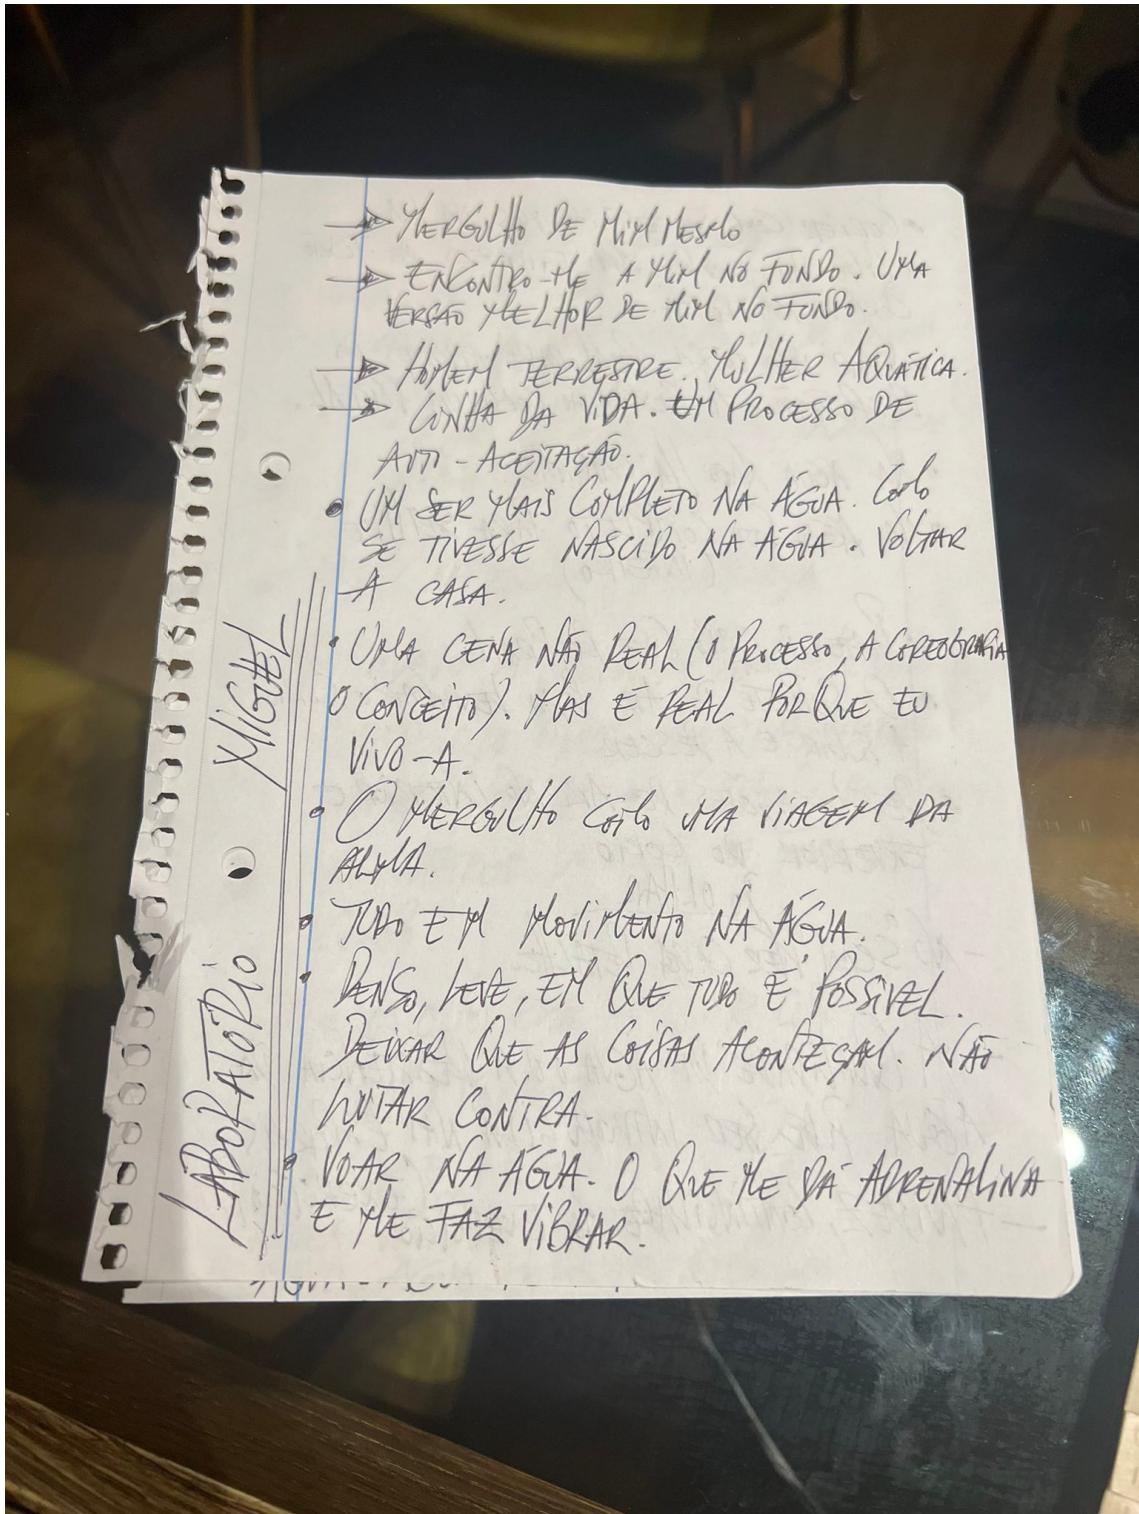 → MERGULHO DE MIM MESMO
→ ENCONTRO-ME A MIM NO FUNDO. UMA
VERSÃO MELHOR DE MIM NO FUNDO.
→ HOMEM TERRESTRE. MULHER AQUÁTICA.
→ LINHA DA VIDA. UM PROCESSO DE
AUTO-ACEITAÇÃO.
• UM SER MAIS COMPLETO NA ÁGUA. COMO
SE TIVESSE NASCIDO NA ÁGUA. VOLTAR
A CASA.
• UMA CENA NÃO REAL (O PROCESSO, A COREOGRAFIA
O CONCEITO). MAS É REAL PORQUE EU
VIVO-A.
• O MERGULHO COMO UMA VIAGEM DA
ALMA.
• TUDO EM MOVIMENTO NA ÁGUA.
• DENSO, LEVE, EM QUE TUDO É POSSÍVEL.
DEIXAR QUE AS COISAS ACONTEÇAM. NÃO
LUTAR CONTRA.
• VOAR NA ÁGUA. O QUE ME DÁ ADRENALINA
E ME FAZ VIBRAR.
LABORATÓRIO MIGUEL